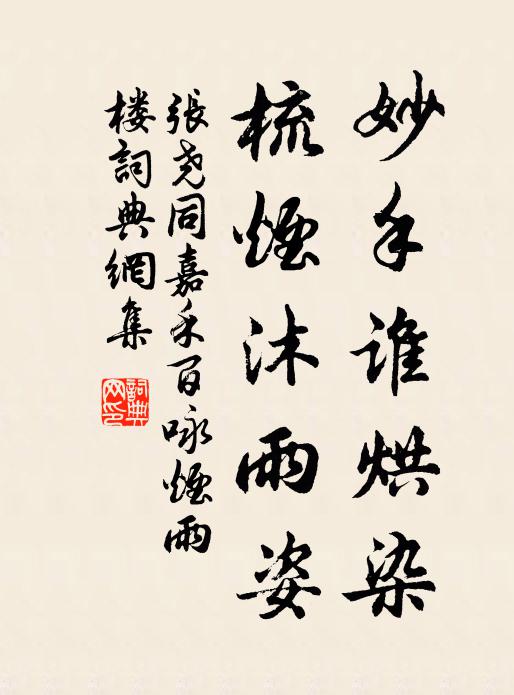 妙手谁烘染
梳煙沐雨姿
張堯同嘉禾百咏煙雨
楼詞典網集
詞典网印